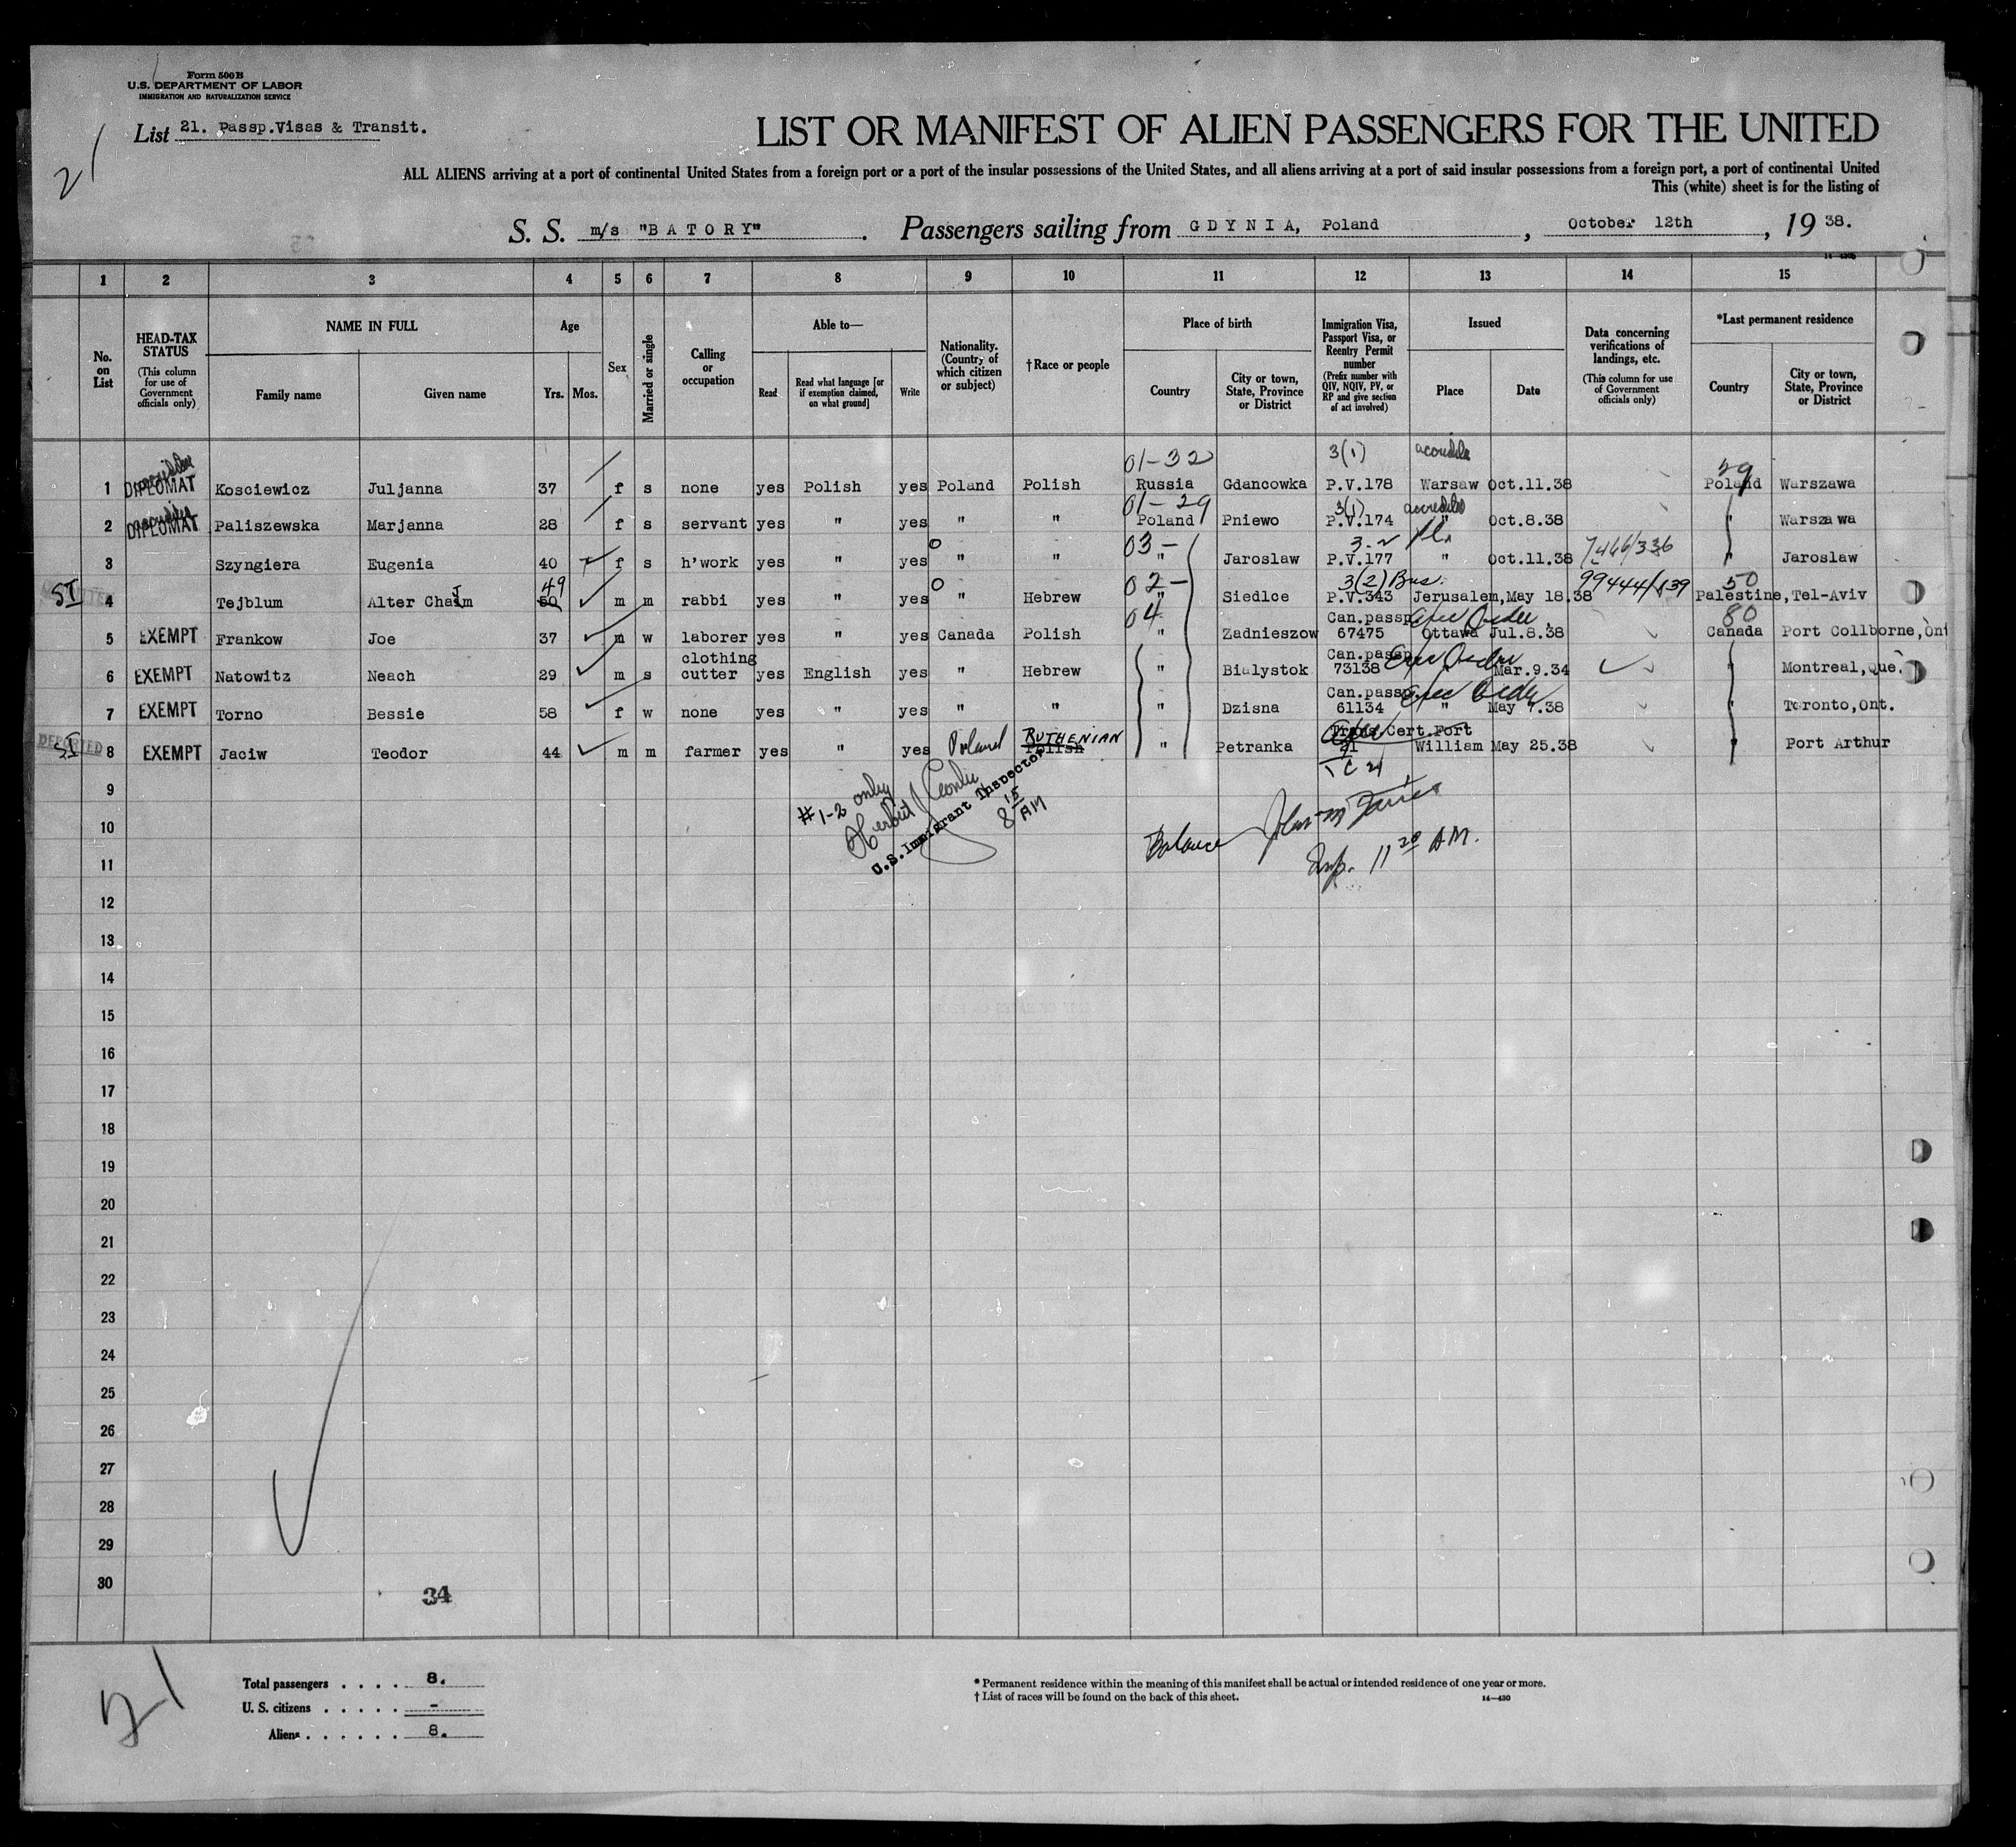 Form 500 B
U.S. DEPARTMENT OF LABOR
IMMIGRATION AND NATURALIZATION SERVICE
List 21. Passp.Visas & Transit.
21
LIST OR MANIFEST OF ALIEN PASSENGERS FOR THE UNITED
ALL ALIENS arriving at a port of continental United States from a foreign port or a port of the insular possessions of the United States, and all aliens arriving at a port of said insular possessions from a foreign port, a port of continental United
This (white) sheet is for the listing of
S. S. m/s "BATORY". Passengers sailing from GDYNIA, Poland, October 12th, 19 38.
1 2 3 4 5 6 7 8 9 10 11 12 13 14 15
No. on List
HEAD-TAX STATUS
(This column for use of Government officials only)
NAME IN FULL
Family name Given name
Age
Yrs. Mos.
Sex
Married or single
Calling or occupation
Able to—
Read
Read what language [or if exemption claimed, on what ground]
Write
Nationality. (Country of which citizen or subject)
†Race or people
Place of birth
Country
City or town, State, Province or District
Immigration Visa, Passport Visa, or Reentry Permit number
(Prefix number with QIV, NQIV, PV, or RP and give section of act involved)
Issued
Place Date
Data concerning verifications of landings, etc.
(This column for use of Government officials only)
*Last permanent residence
Country
City or town, State, Province or District
01-32 3(1) 29
1 DIPLOMAT Kosciewicz Juljanna 37 f s none yes Polish yes Poland Polish Russia Gdancowka P.V.178 Warsaw Oct.11.38 Poland Warszawa
01-29 3(1)
2 DIPLOMAT Paliszewska Marjanna 28 f s servant yes " yes " " Poland Pniewo P.V.174 " Oct.8.38 " Warszawa
03- 3-2 Pl.
3 Szyngiera Eugenia 40 f s h'work yes " yes " " " Jaroslaw P.V.177 " Oct.11.38 " Jaroslaw
49 02- 3(2) Bus. 99444/839 50
SI 4 Tejblum Alter Chaim 50 m m rabbi yes " yes " Hebrew " Siedlce P.V.343 Jerusalem,May 18.38 Palestine,Tel-Aviv
04 Can.passp. 80
5 EXEMPT Frankow Joe 37 m w laborer yes " yes Canada Polish " Zadnieszow 67475 Ottawa Jul.8.38 Canada Port Collborne,Ont
clothing Can.passp.
6 EXEMPT Natowitz Neach 29 m s cutter yes English yes " Hebrew " Bialystok 73138 " Mar.9.34 " Montreal,Que.
Can.passp.
7 EXEMPT Torno Bessie 58 f w none yes " yes " " " Dzisna 61134 " May 7.38 " Toronto,Ont.
RUTHENIAN Cert.Port
DEPORTED SI 8 EXEMPT Jaciw Teodor 44 m m farmer yes " yes Poland Polish " Petranka 21 William May 25.38 " Port Arthur
TC 21
9
#1-2 only
U.S. Immigrant Inspector
8 15 AM
Balance
Insp. 11 20 AM.
10
11
12
13
14
15
16
17
18
19
20
21
22
23
24
25
26
27
28
29
30
34
21
Total passengers . . . . 8.
U. S. citizens . . . . . -
Aliens . . . . . . 8.
* Permanent residence within the meaning of this manifest shall be actual or intended residence of one year or more.
† List of races will be found on the back of this sheet.
14—430